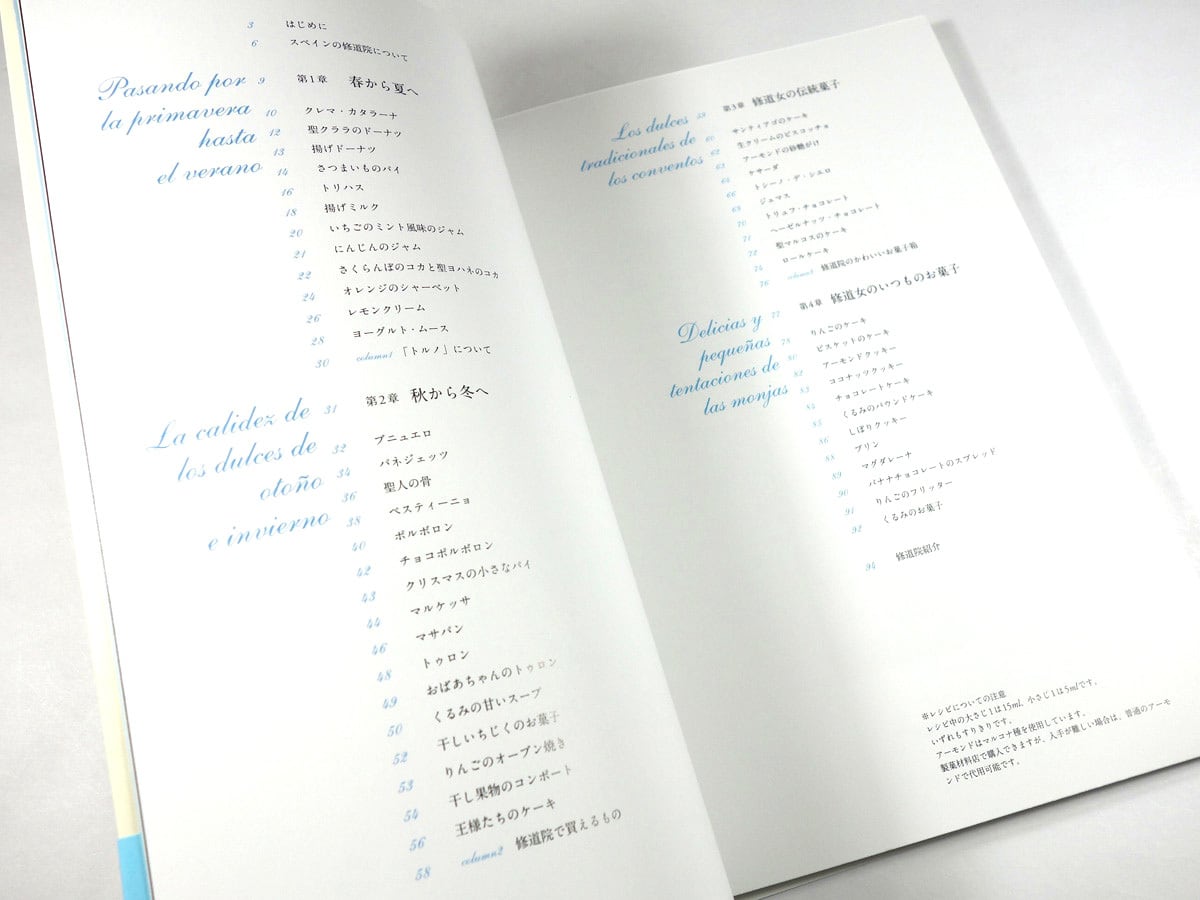 3 はじめに
6 スペインの修道院について
Pasando por
la primavera
hasta
el verano
9 第1章 春から夏へ
10 クレマ・カタラーナ
12 聖クララのドーナツ
13 揚げドーナツ
14 さつまいものパイ
16 トリハス
18 揚げミルク
20 いちごのミント風味のジャム
21 にんじんのジャム
22 さくらんぼのコカと聖ヨハネのコカ
24 オレンジのシャーベット
26 レモンクリーム
28 ヨーグルト・ムース
30 column1 「トルノ」について
La calidez de
los dulces de
otoño
e invierno
31 第2章 秋から冬へ
32 ブニュエロ
34 パネジェッツ
36 聖人の骨
38 ペスティーニョ
40 ポルボロン
42 チョコポルボロン
43 クリスマスの小さなパイ
44 マルケッサ
46 マサパン
48 トゥロン
49 おばあちゃんのトゥロン
50 くるみの甘いスープ
52 干しいちじくのお菓子
53 りんごのオーブン焼き
54 干し果物のコンポート
56 王様たちのケーキ
58 column2 修道院で買えるもの
Los dulces
tradicionales de
los conventos
59 第3章 修道女の伝統菓子
60 サンティアゴのケーキ
62 生クリームのビスコッチョ
63 アーモンドの砂糖がけ
64 ケサーダ
66 トシーノ・デ・シエロ
68 ジェマス
70 トリュフ・チョコレート
71 ヘーゼルナッツ・チョコレート
72 聖マルコスのケーキ
74 ロールケーキ
76 column3 修道院のかわいいお菓子箱
Delicias y
pequeñas
tentaciones de
las monjas
77 第4章 修道女のいつものお菓子
78 りんごのケーキ
80 ビスケットのケーキ
82 アーモンドクッキー
83 ココナッツクッキー
84 チョコレートケーキ
85 くるみのパウンドケーキ
86 しぼりクッキー
88 プリン
89 マグダレーナ
90 バナナチョコレートのスプレッド
91 りんごのフリッター
92 くるみのお菓子
94 修道院紹介
※レシピについての注意
レシピ中の大さじ1は15ml、小さじ1は5mlです。
いずれもすりきりです。
アーモンドはマルコナ種を使用しています。
製菓材料店で購入できますが、入手が難しい場合は、普通のアーモ
ンドで代用可能です。